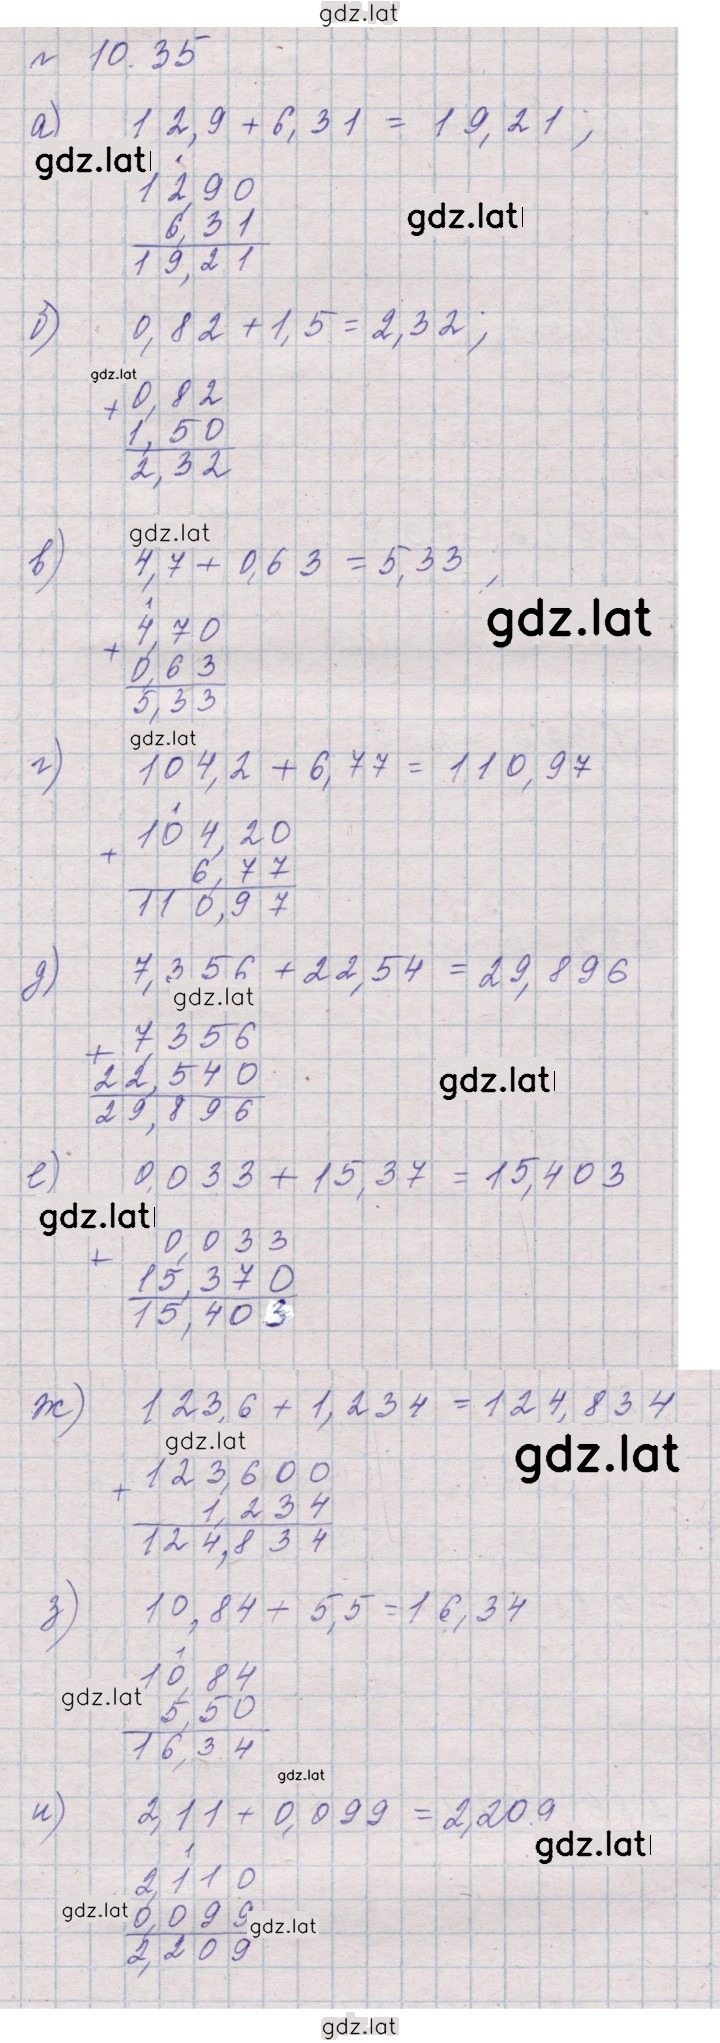 gdz.lat
№ 10.35
а) 12,9 + 6,31 = 19,21 ;
gdz.lat
1
12,90
gdz.lat
6,31
19,21
б) 0,82 + 1,5 = 2,32 ;
gdz.lat
+ 0,82
1,50
2,32
gdz.lat
в) 4,7 + 0,63 = 5,33 ;
1
gdz.lat
+ 4,70
0,63
5,33
gdz.lat
г) 104,2 + 6,77 = 110,97
1
+ 104,20
6,77
110,97
д) 7,356 + 22,54 = 29,896
gdz.lat
+ 7,356
22,540
gdz.lat
29,896
е) 0,033 + 15,37 = 15,403
gdz.lat
+ 0,033
15,370
15,403
ж) 123,6 + 1,234 = 124,834
gdz.lat
gdz.lat
+ 123,600
1,234
124,834
з) 10,84 + 5,5 = 16,34
1
10,84
gdz.lat
5,50
16,34
gdz.lat
и) 2,11 + 0,099 = 2,209
gdz.lat
1
2,110
gdz.lat
0,099
gdz.lat
2,209
gdz.lat